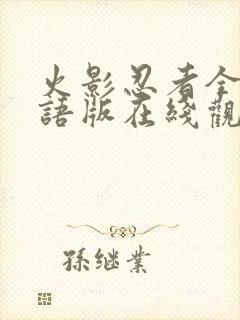 火影忍者全
語版在綫觀
孫继業